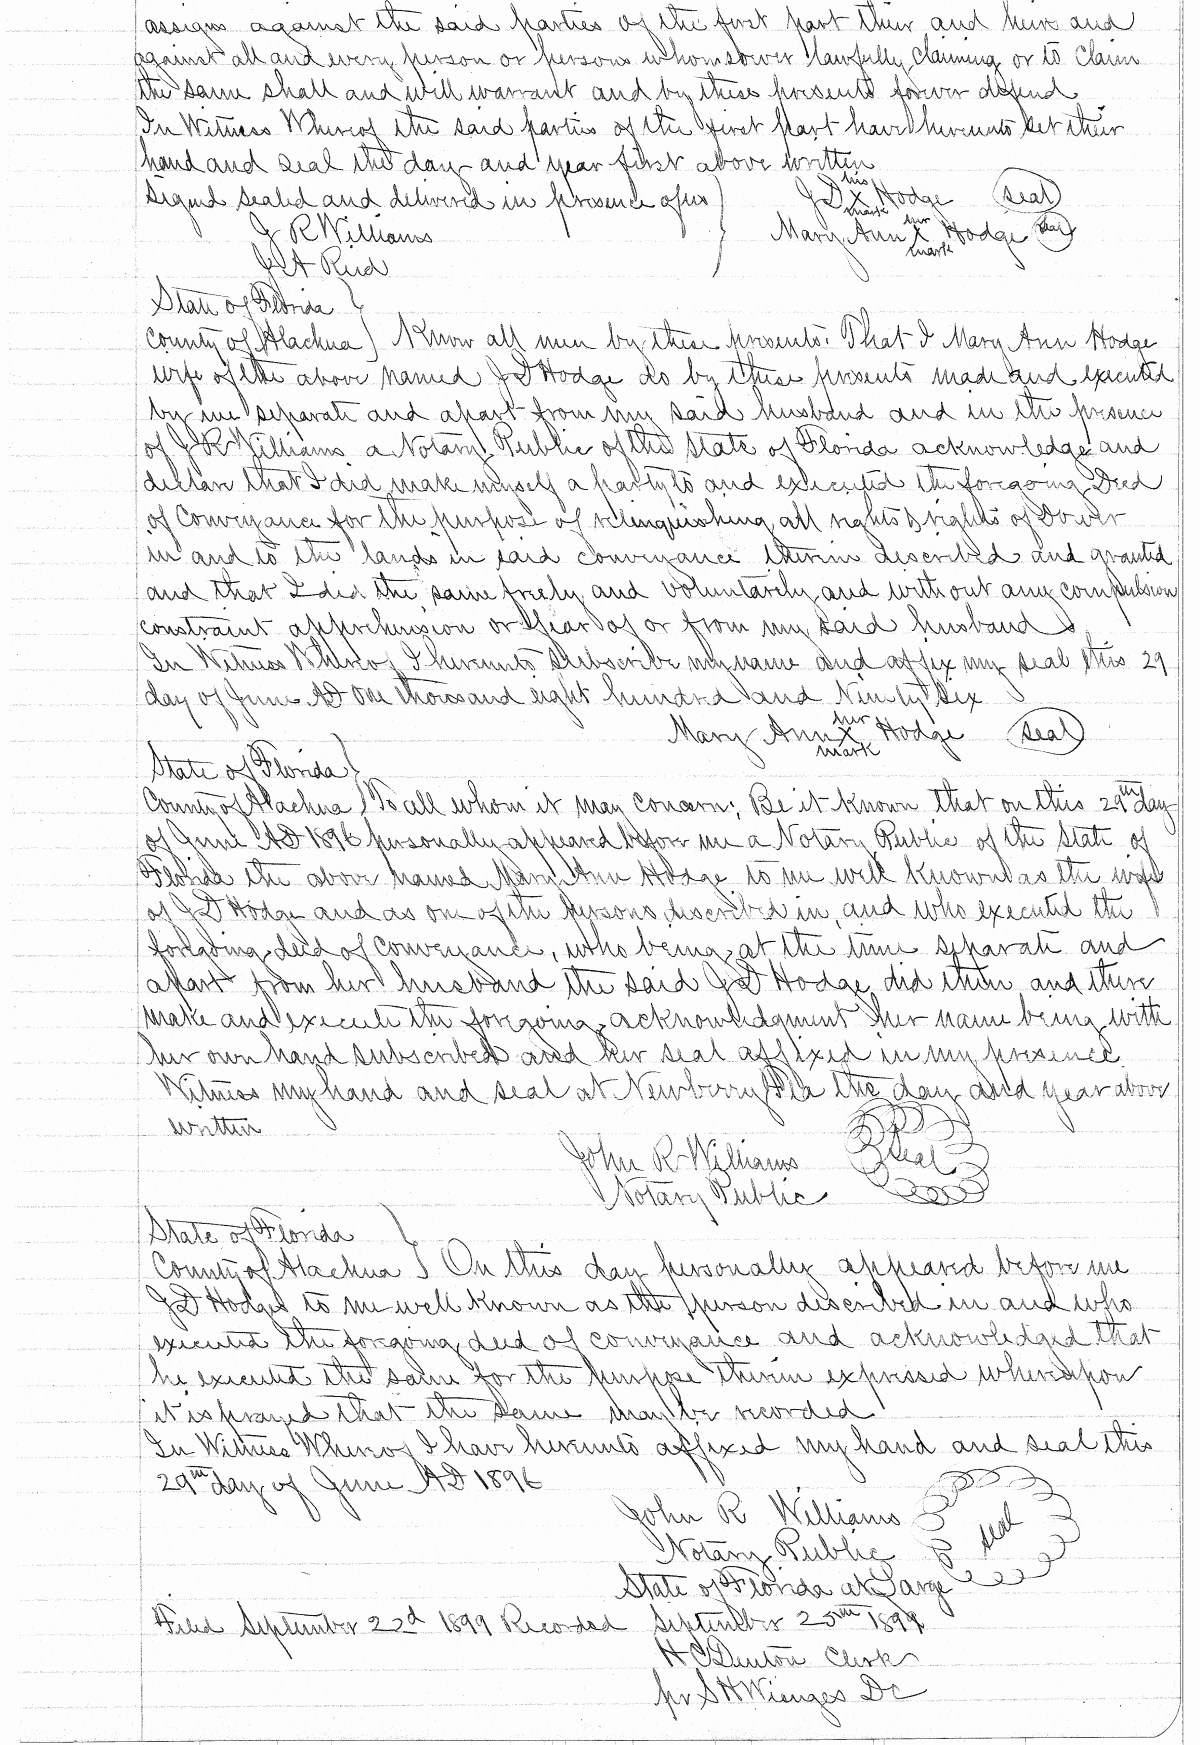 assigns against the said parties of the first part their and heirs and
against all and every person or persons whomsoever lawfully claiming or to claim
the same shall and will warrant and by these presents forever defend
In Witness Whereof the said parties of the first part have hereunto set their
hand and seal the day and year first above written
Signed sealed and delivered in presence of us } J D his x mark Hodge (seal)
J R Williams Mary Ann her x mark Hodge (seal)
J A Reid
State of Florida }
County of Alachua } Know all men by these presents: That I Mary Ann Hodge
wife of the above named J D Hodge do by these presents made and executed
by me separate and apart from my said husband and in the presence
of J R Williams a Notary Public of the State of Florida acknowledge and
declare that I did make myself a party to and executed the foregoing Deed
of Conveyance for the purpose of relinquishing all rights & rights of Dower
in and to the lands in said conveyance therein described and granted
and that I did the same freely and voluntarely and without any compulsion
constraint apprehension or fear of or from my said husband
In Witness Whereof I hereunto subscribe my name and affix my seal this 29
day of June AD One thousand eight hundred and Ninety Six
Mary Ann her x mark Hodge (seal)
State of Florida }
County of Alachua } To all whom it may concern; Be it known that on this 29th day
of June AD 1896 personally appeared before me a Notary Public of the State of
Florida the above named Mary Ann Hodge to me well known as the wife
of J D Hodge and as one of the persons described in, and who executed the
foregoing deed of conveyance, who being at the time separate and
apart from her husband the said J D Hodge did then and there
make and execute the forgoing acknowledgment her name being with
her own hand subscribed and her seal affixed in my presence
Witness my hand and seal at Newberry Fla the day and year above
written
John R Williams seal
Notary Public
State of Florida }
County of Alachua } On this day personally appeared before me
J D Hodges to me well known as the person described in and who
executed the forgoing deed of conveyance and acknowledged that
he executed the same for the purpose therein expressed whereupon
it is prayed that the same may be recorded
In Witness Whereof I have hereunto affixed my hand and seal this
29th day of June AD 1896
John R Williams seal
Notary Public
State of Florida at Large
Filed September 22d 1899 Recorded September 25th 1899
H C Denton Clerk
pr S H Wienges DC